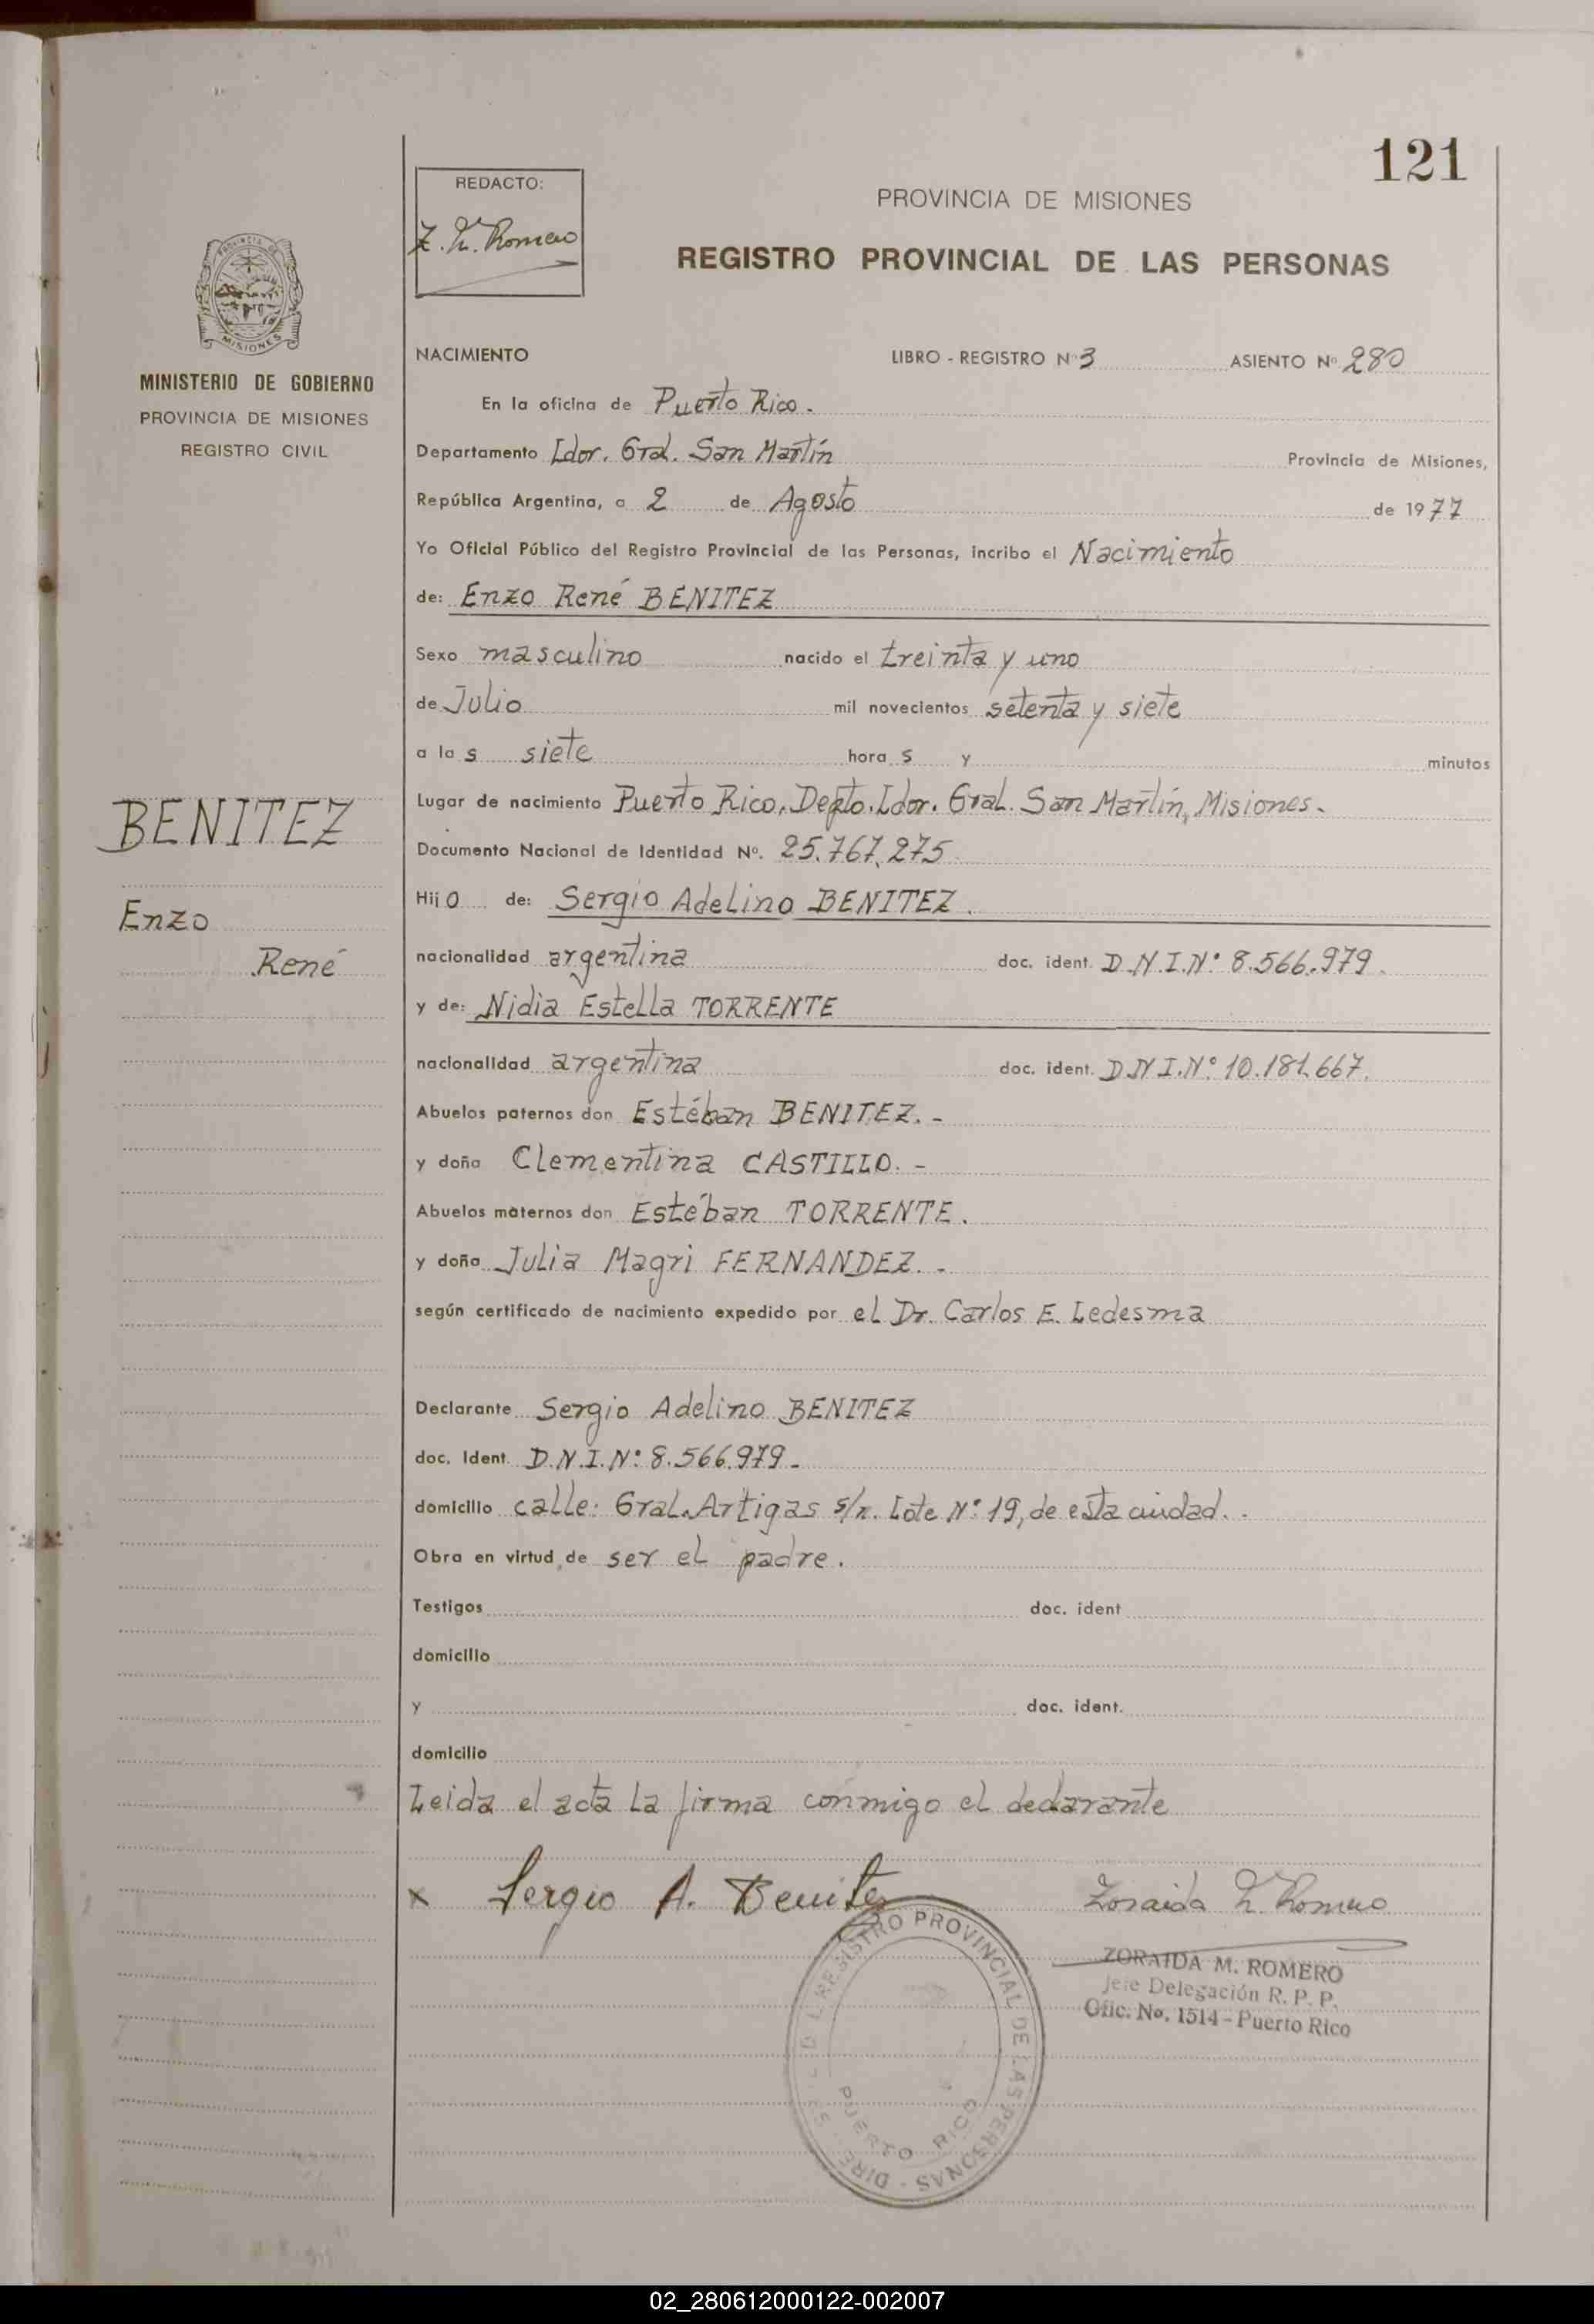 121
REDACTO:
Z. M. Romero
PROVINCIA DE MISIONES
REGISTRO PROVINCIAL DE LAS PERSONAS
PROVINCIA DE
MISIONES
MINISTERIO DE GOBIERNO
PROVINCIA DE MISIONES
REGISTRO CIVIL
NACIMIENTO LIBRO - REGISTRO Nº 3 ASIENTO Nº 280
En la oficina de Puerto Rico.
Departamento Ldor. Gral. San Martín Provincia de Misiones,
República Argentina, a 2 de Agosto de 1977
Yo Oficial Público del Registro Provincial de las Personas, incribo el Nacimiento
de: Enzo René BENITEZ
Sexo masculino nacido el treinta y uno
de Julio mil novecientos setenta y siete
a las siete horas y minutos
Lugar de nacimiento Puerto Rico, Depto. Ldor. Gral. San Martín, Misiones.
BENITEZ
Enzo
René
Documento Nacional de Identidad Nº. 25.767.275
Hijo de: Sergio Adelino BENITEZ.
nacionalidad argentina doc. ident. D.N.I.Nº 8.566.979.
y de: Nidia Estella TORRENTE
nacionalidad argentina doc. ident. D.N.I.Nº 10.181.667.
Abuelos paternos don Estéban BENITEZ. -
y doña Clementina CASTILLO. -
Abuelos maternos don Estéban TORRENTE.
y doña Julia Magri FERNANDEZ. -
según certificado de nacimiento expedido por el Dr. Carlos E. Ledesma
Declarante Sergio Adelino BENITEZ
doc. Ident. D.N.I.Nº 8.566.979-
domicilio calle: Gral. Artigas s/n. Lote Nº 19, de esta ciudad. -
Obra en virtud de ser el padre.
Testigos doc. ident
domicilio
y doc. ident.
domicilio
Leida el acta la firma conmigo el declarante
x Sergio A. Benitez Zoraida M. Romero
ZORAIDA M. ROMERO
Jefe Delegación R. P. P.
Ofic. No. 1514 - Puerto Rico
REGISTRO PROVINCIAL DE LAS PERSONAS
PUERTO RICO
02_280612000122-002007